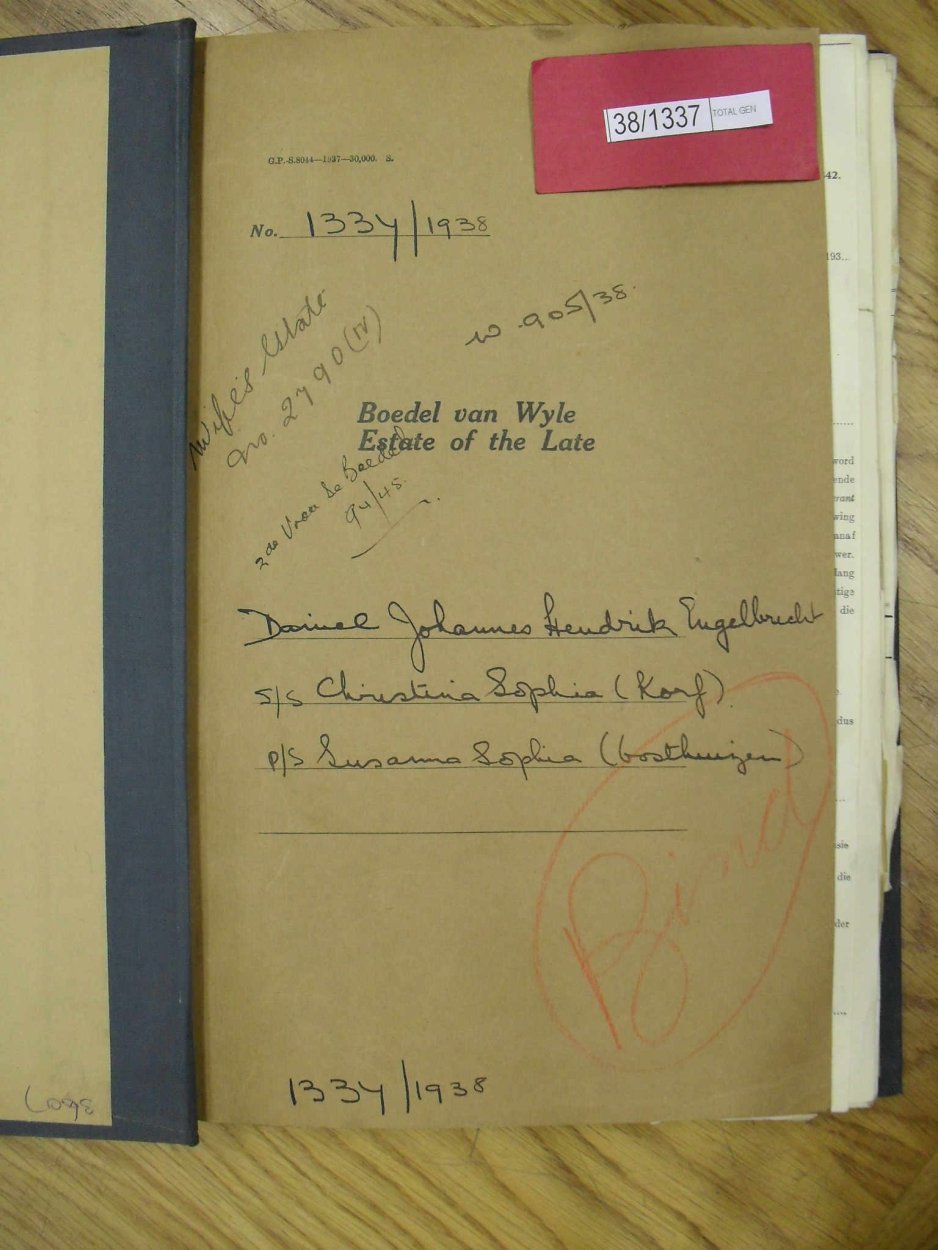 38/1337 TOTAL GEN
G.P.-S.8044—1937—30,000. S.
No. 1337/1938
W. 905/38.
Wife's Estate
No. 2790 (IV)
Boedel van Wyle
Estate of the Late
2de Vrou se Boedel
94/45.
Daniel Johannes Hendrik Engelbrecht
s/s Christina Sophia (Korf)
p/s Susanna Sophia (Oosthuizen)
Bind
1337/1938
42.
193...
word
ende
rant
wing
anaf
wer.
lang
tige
die
dus
sie
die
der